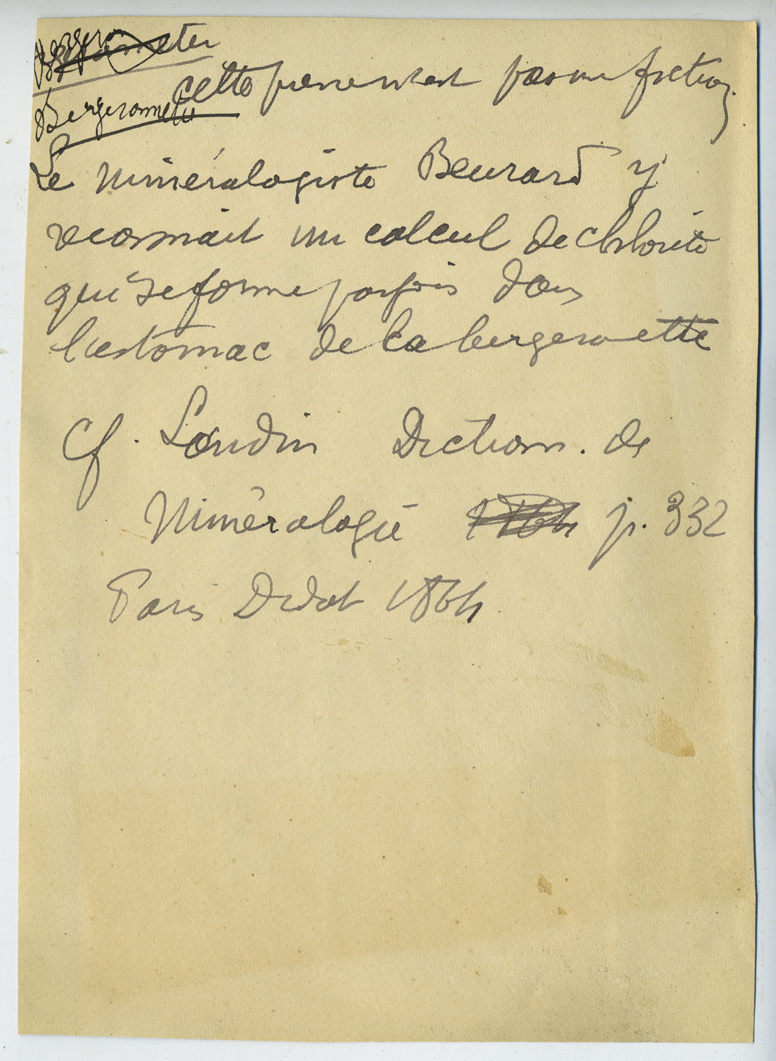 Bergeronnette
cette pierre n'est pas une fiction.
Le minéralogiste Beurard y
reconnait un calcul de chlorite
qui se forme parfois dans
l'estomac de la bergeronette
Cf. Landrin Diction. de
Minéralogie p. 332
Paris Didot 1864